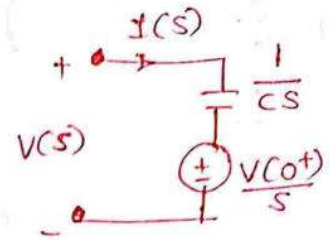 I(S)
+
1
CS
V(S)
±
V(0⁺)
S
-